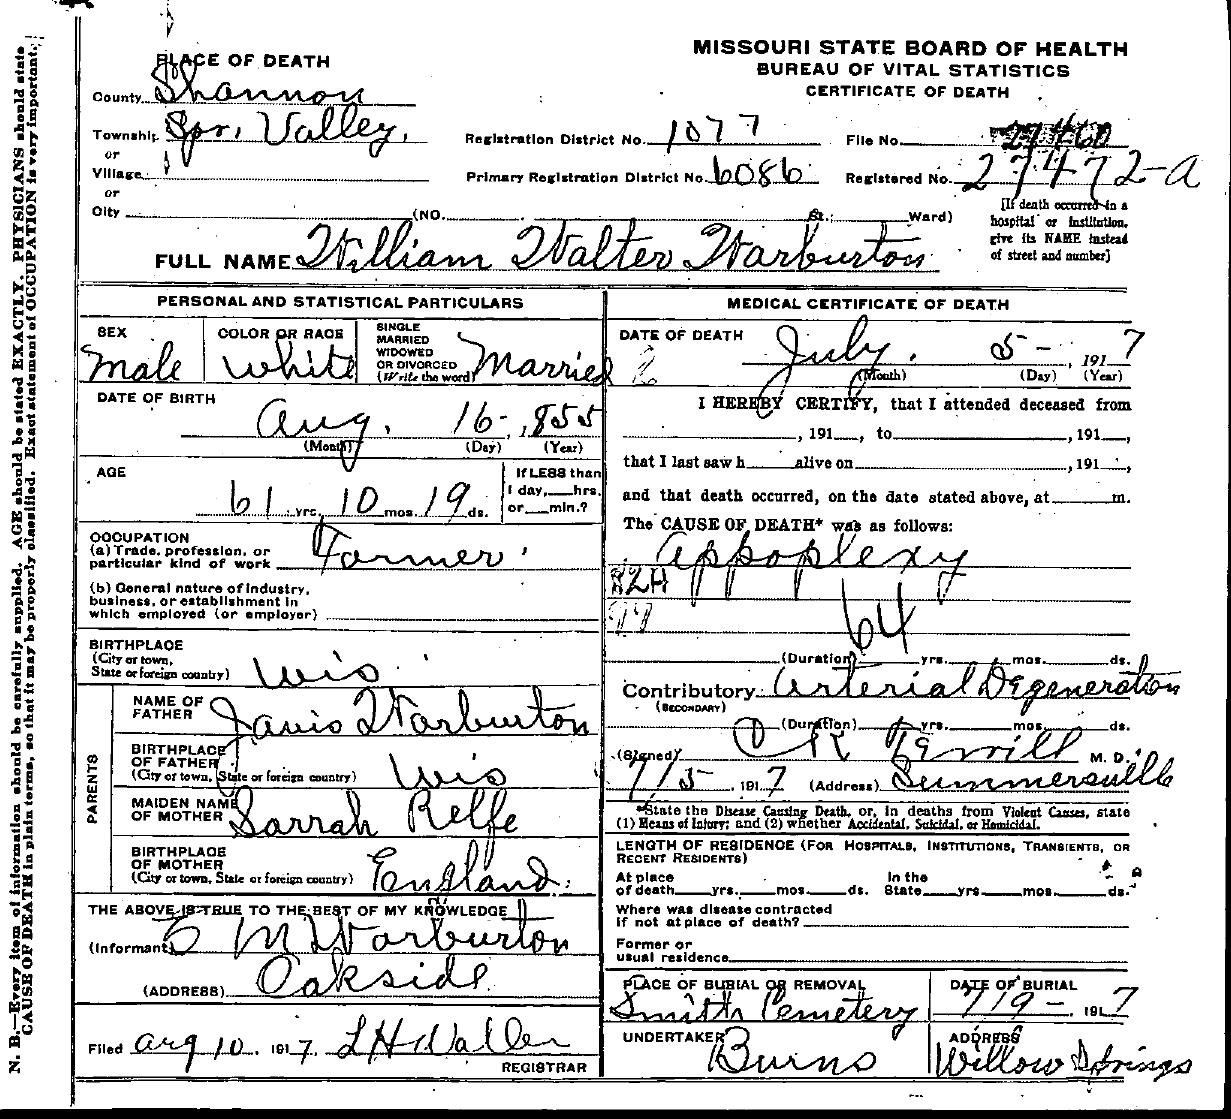 MISSOURI STATE BOARD OF HEALTH
BUREAU OF VITAL STATISTICS
CERTIFICATE OF DEATH
PLACE OF DEATH
County Shannon
Township Spr. Valley,
or
Village
or
City (NO. St.; Ward)
Registration District No. 1077 File No. 27460
Primary Registration District No. 6086 Registered No. 27472-a
[If death occurred in a
hospital or institution,
give its NAME instead
of street and number]
FULL NAME William Walter Warburton
PERSONAL AND STATISTICAL PARTICULARS
SEX
male
COLOR OR RACE
White
SINGLE
MARRIED
WIDOWED
OR DIVORCED
(Write the word) Married
DATE OF BIRTH
Aug. 16-, 855
(Month) (Day) (Year)
AGE
61 yrs. 10 mos. 19 ds.
If LESS than
1 day, hrs.
or min.?
OCCUPATION
(a) Trade, profession, or
particular kind of work Farmer
(b) General nature of industry,
business, or establishment in
which employed (or employer)
BIRTHPLACE
(City or town,
State or foreign country) Wis.
PARENTS
NAME OF
FATHER Javis Warburton
BIRTHPLACE
OF FATHER
(City or town, State or foreign country) Wis
MAIDEN NAME
OF MOTHER Sarrah Relfe
BIRTHPLACE
OF MOTHER
(City or town, State or foreign country) England.
THE ABOVE IS TRUE TO THE BEST OF MY KNOWLEDGE
(Informant) M Warburton
(ADDRESS) Oakside
Filed aug 10, 1917. L H Waller
REGISTRAR
MEDICAL CERTIFICATE OF DEATH
DATE OF DEATH
July. 5- 1917
(Month) (Day) (Year)
I HEREBY CERTIFY, that I attended deceased from
, 191 , to , 191 ,
that I last saw h alive on , 191 ,
and that death occurred, on the date stated above, at m.
The CAUSE OF DEATH* was as follows:
appoplexy
82A
64
(Duration) yrs. mos. ds.
Contributory arterial Degeneration
(SECONDARY)
(Duration) yrs. mos. ds.
(Signed) M. D.
7/5, 1917 (Address) Summersville
*State the Disease Causing Death, or, in deaths from Violent Causes, state
(1) Means of Injury; and (2) whether Accidental, Suicidal, or Homicidal.
LENGTH OF RESIDENCE (FOR HOSPITALS, INSTITUTIONS, TRANSIENTS, OR
RECENT RESIDENTS)
At place In the
of death yrs. mos. ds. State yrs. mos. ds.
Where was disease contracted
if not at place of death?
Former or
usual residence
PLACE OF BURIAL OR REMOVAL
Smith Cemetery
DATE OF BURIAL
7/9- 1917
UNDERTAKER
Burns
ADDRESS
Willow Springs
N. B.—Every item of information should be carefully supplied. AGE should be stated EXACTLY. PHYSICIANS should state
CAUSE OF DEATH in plain terms, so that it may be properly classified. Exact statement of OCCUPATION is very important.